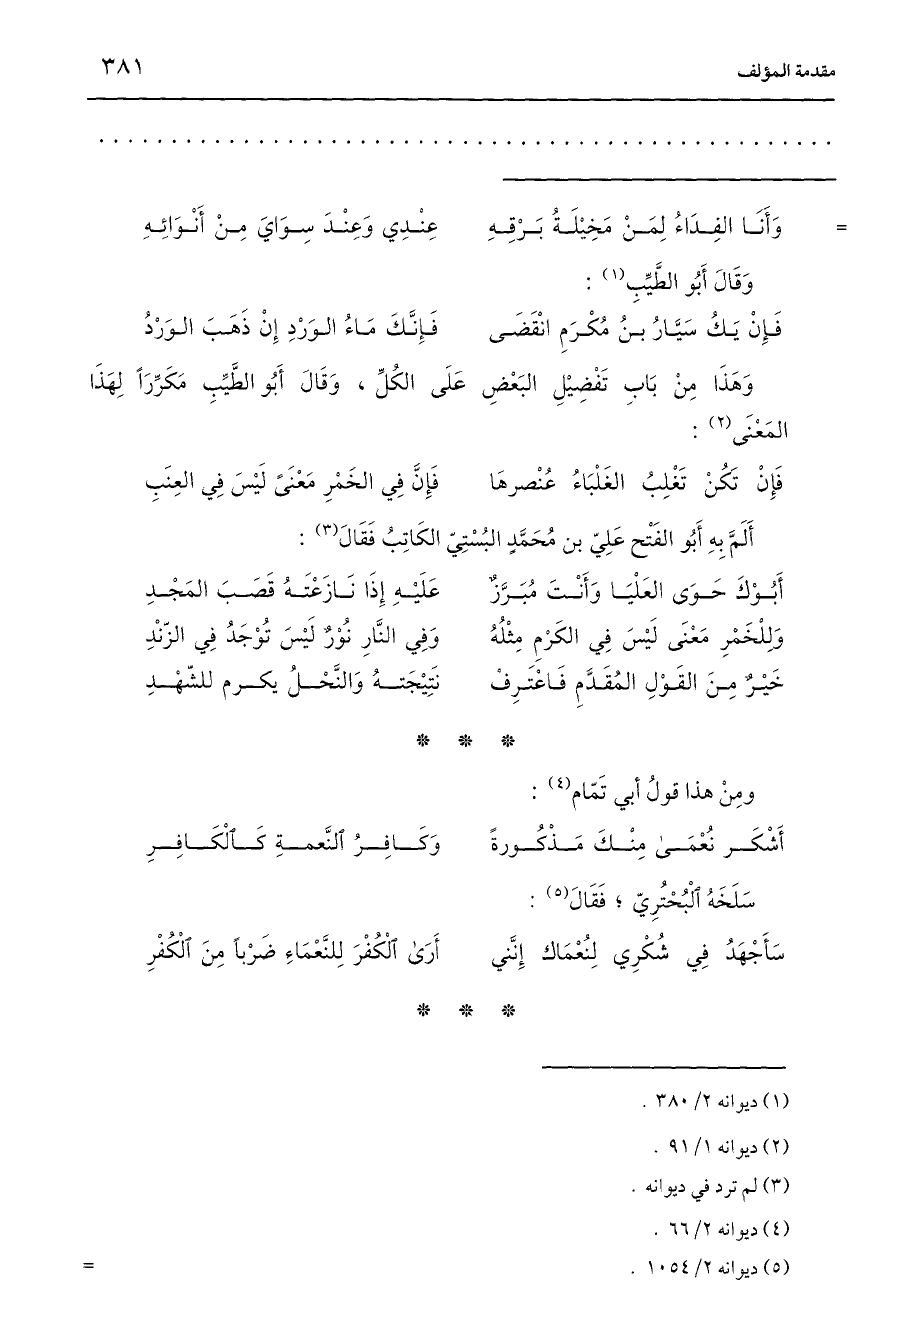 مقدمة المؤلف ٣٨١
. . . . . . . . . . . . . . . . . . . . . . . . . . . . . . . . . . . . . . . . . . . . . . . . . . .
= وَأَنَـا الفِـدَاءُ لِمَـنْ مَخِيْلَـةُ بَـرْقِـهِ عِنْـدِي وَعِنْـدَ سِـوَايَ مِـنْ أَنْـوَائِـهِ
وَقَالَ أَبُو الطَّيِّبِ(١) :
فَـإِنْ يَـكُ سَيَّـارُ بـنُ مُكْـرَمٍ انْقَضَـى فَـإِنَّـكَ مَـاءُ الـوَرْدِ إِنْ ذَهَـبَ الـوَرْدُ
وَهَذَا مِنْ بَابِ تَفْضِيْلِ البَعْضِ عَلَى الكُلِّ ، وَقَالَ أَبُو الطَّيِّبِ مَكَرِّرَاً لِهَذَا
المَعْنَى(٢) :
فَإِنْ تَكُنْ تَغْلِبُ الغَلْبَاءُ عُنْصرهَا فَإِنَّ فِي الخَمْرِ مَعْنَىً لَيْسَ فِي العِنَبِ
أَلَمَّ بِهِ أَبُو الفَتْحِ عَلِيّ بن مُحَمَّدٍ البُسْتِيّ الكَاتِبُ فَقَالَ(٣) :
أَبُـوْكَ حَـوَى العَلْيَـا وَأَنْـتَ مُبَـرَّزٌ عَلَيْـهِ إِذَا نَـازَعْتَـهُ قَصَـبَ المَجْـدِ
وَلِلْخَمْرِ مَعْنَى لَيْسَ فِي الكَرْمِ مِثْلُهُ وَفِي النَّارِ نُوْرٌ لَيْسَ تُوْجَدُ فِي الزّنْدِ
خَيْـرٌ مِـنَ القَـوْلِ المُقَـدَّمِ فَـاعْتَـرِفْ نَتِيْجَتـهُ وَالنَّحْـلُ يكـرم للشّهْـدِ
* * *
ومِنْ هذا قولُ أبي تَمّام(٤) :
أَشْكَـر نُعْمَـىٰ مِنْـكَ مَـذْكُـورةً وَكَـافِـرُ ٱلنَّعمـةِ كَـٱلْكَـافِـرِ
سَلَخَهُ ٱلْبُحْتُرِيّ ؛ فَقَالَ(٥) :
سَأَجْهَدُ فِي شُكْرِي لِنُعْمَاكَ إِنَّنِي أَرَىٰ ٱلْكُفْرَ لِلنَّعْمَاءِ ضَرْباً مِنَ ٱلْكُفْرِ
* * *
(١) ديوانه ٢/ ٣٨٠ .
(٢) ديوانه ١/ ٩١ .
(٣) لم ترد في ديوانه .
(٤) ديوانه ٢/ ٦٦ .
(٥) ديوانه ٢/ ١٠٥٤ . =